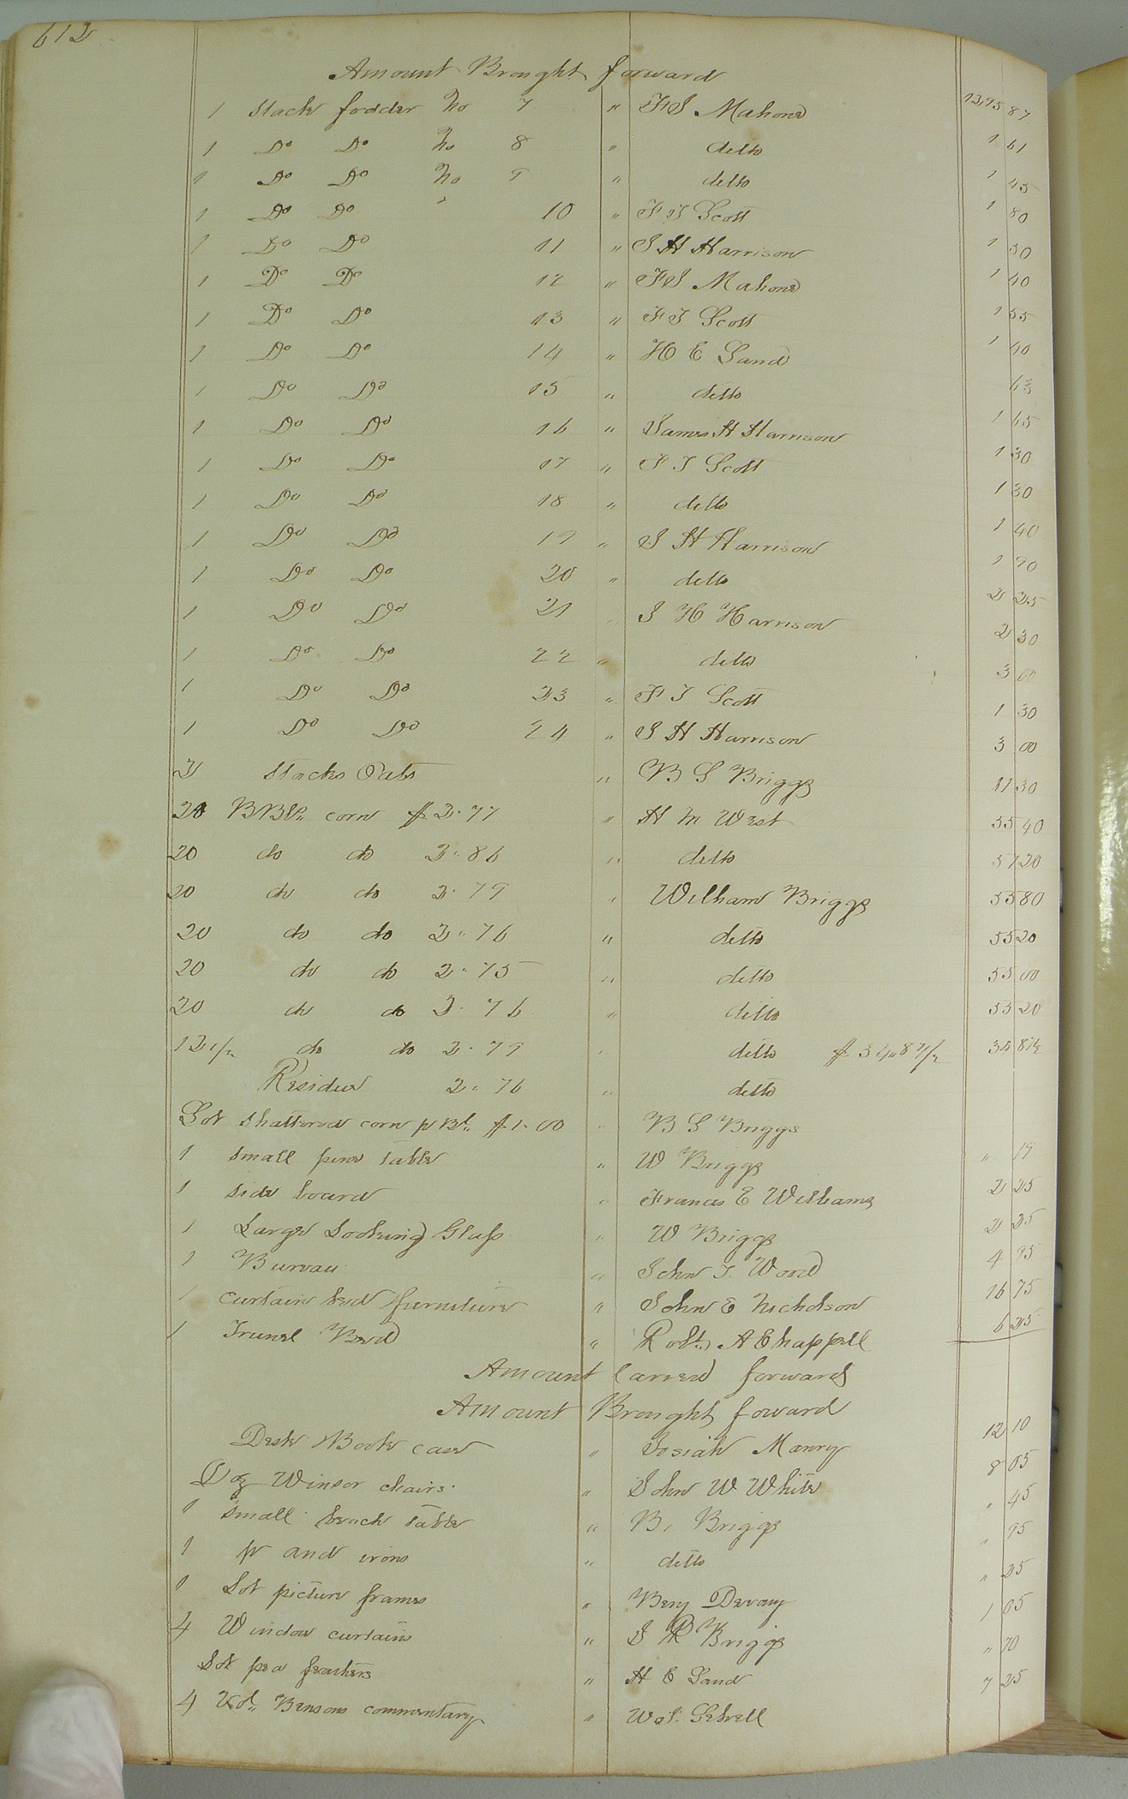 612
Amount Brought forward 1395 87
1 Stack fodder No 7 " F S Mahone 1 61
1 Do Do No 8 " ditto 1 45
1 Do Do No 9 " ditto 1 80
1 Do Do " 10 " F T Scott 1 50
1 Do Do 11 " J H Harrison 1 40
1 Do Do 12 " F S Mahone 1 55
1 Do Do 13 " F T Scott 1 40
1 Do Do 14 " H E Land 63
1 Do Do 15 " ditto 1 65
1 Do Do 16 " James H Harrison 1 30
1 Do Do 17 " F T Scott 1 30
1 Do Do 18 " ditto 1 40
1 Do Do 19 " J H Harrison 1 90
1 Do Do 20 " ditto 2 25
1 Do Do 21 " J H Harrison 2 30
1 Do Do 22 " ditto 3 00
1 Do Do 23 " F T Scott 1 30
1 Do Do 24 " J H Harrison 3 00
2 Stacks Oats " B S Briggs 11 30
20 BBls corn $2.77 " H M West 55 40
20 do do 2.86 " ditto 57 20
20 do do 2.79 " William Briggs 55 80
20 do do 2.76 " ditto 55 20
20 do do 2.75 " ditto 55 00
20 do do 2.76 " ditto 55 20
12 1/2 do do 2.79 " ditto $34.87 1/2 34 87 1/2
Residue 2.76 " ditto
Lot shattered corn pr Bl. $1.00 " B S Briggs
1 small pine table " W Briggs " 19
1 side board " Francis E Williams 2 25
1 Large Looking Glass " W Briggs 2 25
1 Bureau " John T. Wood 4 95
1 curtain bed furniture " John E Nicholson 16 75
1 Trunel Bed " Robt. A Chappell 6 25
Amount carried forward
Amount Brought forward
Desk & Book case " Josiah Manry 12 10
Doz Winsor chairs " John W White 8 05
1 small beach table " B. Briggs " 45
1 pr and irons " ditto " 95
1 Lot picture frames " Benj Devany " 25
4 Window curtains " S R Briggs 1 05
Lot pea feathers " H E Land " 70
4 Vol. Bensons commentary " 7 25